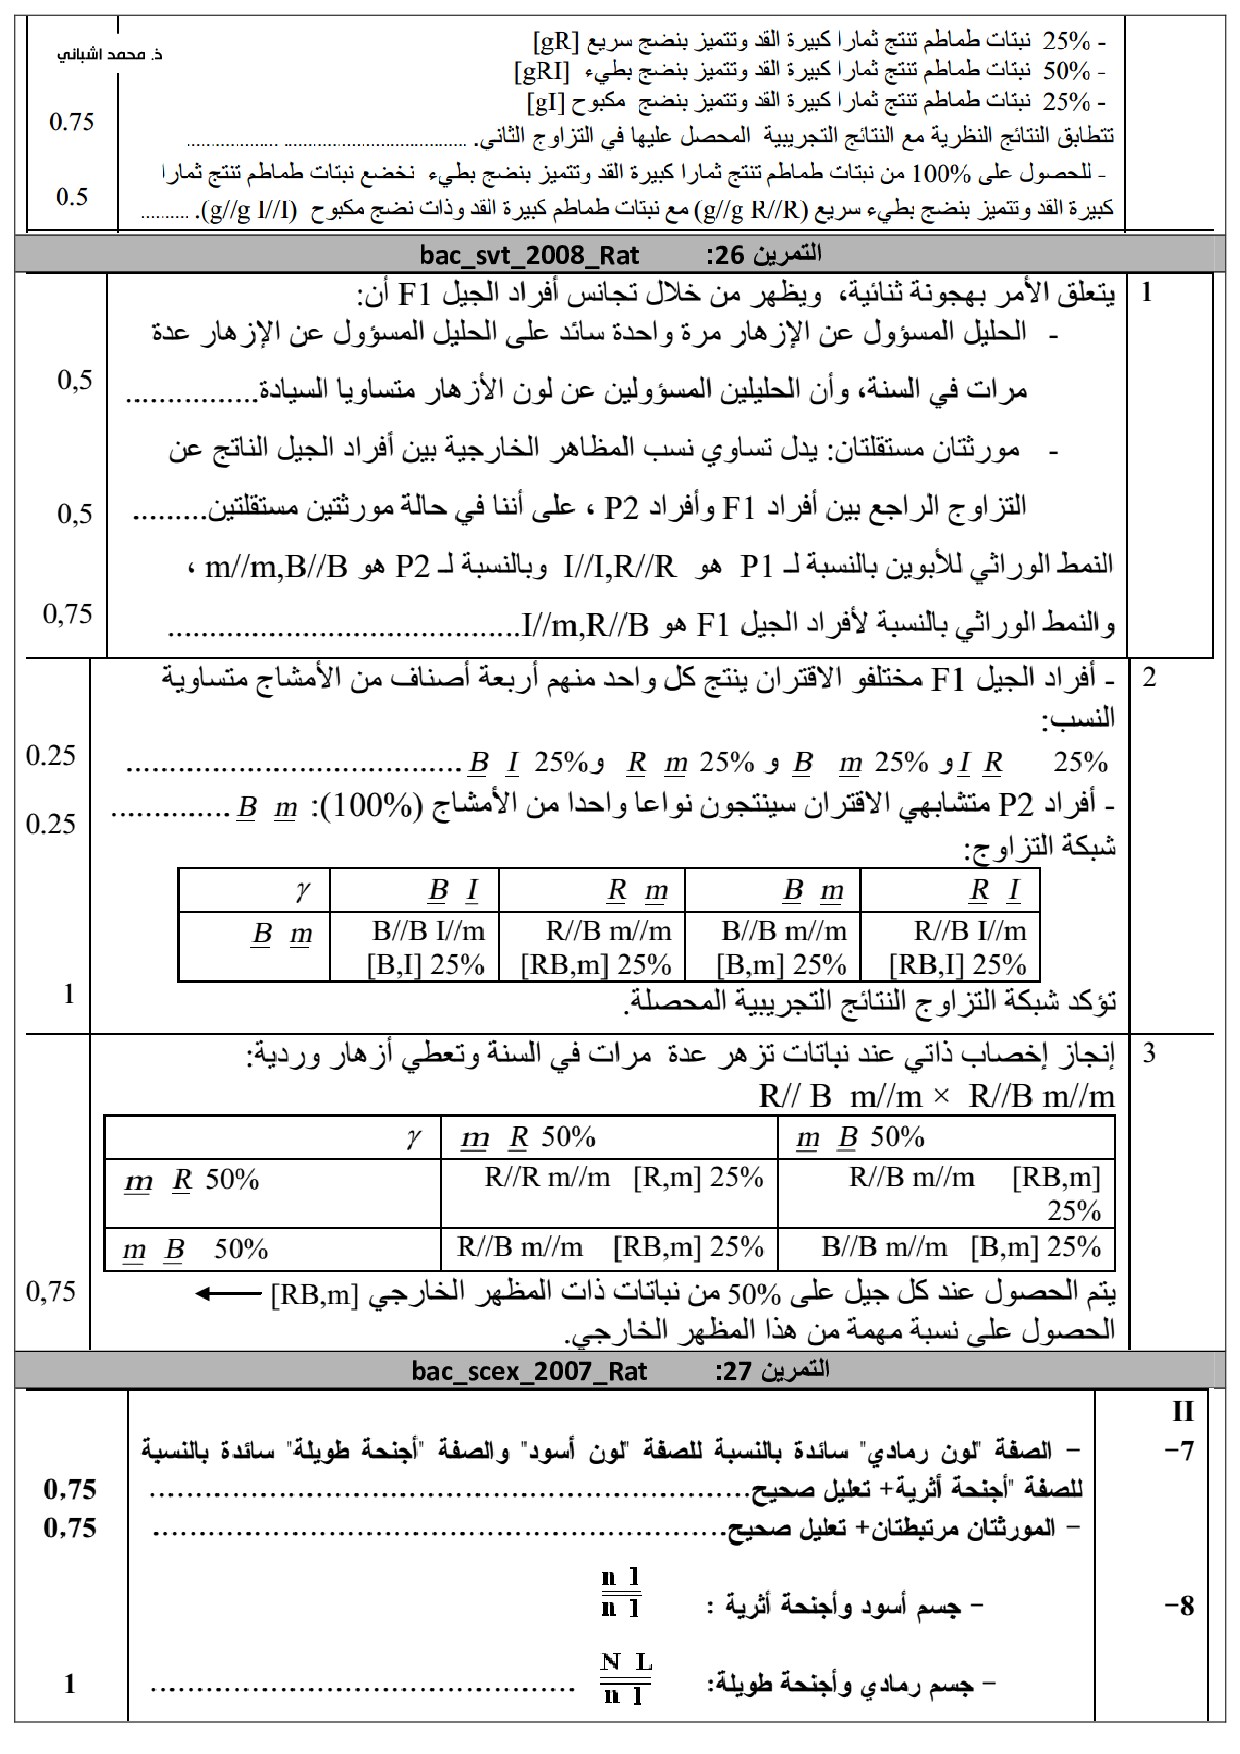 ذ. محمد اشباني
- 25% نبتات طماطم تنتج ثمارا كبيرة القد وتتميز بنضج سريع [gR]
- 50% نبتات طماطم تنتج ثمارا كبيرة القد وتتميز بنضج بطيء [gRI]
- 25% نبتات طماطم تنتج ثمارا كبيرة القد وتتميز بنضج مكبوح [gI]
0.75
تتطابق النتائج النظرية مع النتائج التجريبية المحصل عليها في التزاوج الثاني. ............................................................
- للحصول على 100% من نبتات طماطم تنتج ثمارا كبيرة القد وتتميز بنضج بطيء نخضع نبتات طماطم تنتج ثمارا
0.5
كبيرة القد وتتميز بنضج بطيء سريع (g//g R//R) مع نبتات طماطم كبيرة القد وذات نضج مكبوح (g//g I//I). ..........
التمرين 26: bac_svt_2008_Rat
1 يتعلق الأمر بهجونة ثنائية، ويظهر من خلال تجانس أفراد الجيل F1 أن:
- الحليل المسؤول عن الإزهار مرة واحدة سائد على الحليل المسؤول عن الإزهار عدة
مرات في السنة، وأن الحليلين المسؤولين عن لون الأزهار متساويا السيادة................ 0,5
- مورثتان مستقلتان: يدل تساوي نسب المظاهر الخارجية بين أفراد الجيل الناتج عن
التزاوج الراجع بين أفراد F1 وأفراد P2 ، على أننا في حالة مورثتين مستقلتين......... 0,5
النمط الوراثي للأبوين بالنسبة لـ P1 هو I//I,R//R وبالنسبة لـ P2 هو m//m,B//B ،
والنمط الوراثي بالنسبة لأفراد الجيل F1 هو I//m,R//B.......................................... 0,75
2 - أفراد الجيل F1 مختلفو الاقتران ينتج كل واحد منهم أربعة أصناف من الأمشاج متساوية
النسب:
25% I R و 25% B m و 25% R m و25% B I ........................................ 0.25
- أفراد P2 متشابهي الاقتران سينتجون نواعا واحدا من الأمشاج (100%): B m .............. 0.25
شبكة التزاوج:
γ B I R m B m R I
B m B//B I//m R//B m//m B//B m//m R//B I//m
[B,I] 25% [RB,m] 25% [B,m] 25% [RB,I] 25%
تؤكد شبكة التزاوج النتائج التجريبية المحصلة. 1
3 إنجاز إخصاب ذاتي عند نباتات تزهر عدة مرات في السنة وتعطي أزهار وردية:
R// B m//m × R//B m//m
γ m R 50% m B 50%
m R 50% R//R m//m [R,m] 25% R//B m//m [RB,m]
25%
m B 50% R//B m//m [RB,m] 25% B//B m//m [B,m] 25%
يتم الحصول عند كل جيل على 50% من نباتات ذات المظهر الخارجي [RB,m] ← 0,75
الحصول على نسبة مهمة من هذا المظهر الخارجي.
التمرين 27: bac_scex_2007_Rat
II
7- – الصفة "لون رمادي" سائدة بالنسبة للصفة "لون أسود" والصفة "أجنحة طويلة" سائدة بالنسبة
للصفة "أجنحة أثرية+ تعليل صحيح................................................................ 0,75
– المورثتان مرتبطتان+ تعليل صحيح............................................................ 0,75
n l
8- – جسم أسود وأجنحة أثرية :
n l
N L
– جسم رمادي وأجنحة طويلة: ............................................ 1
n l